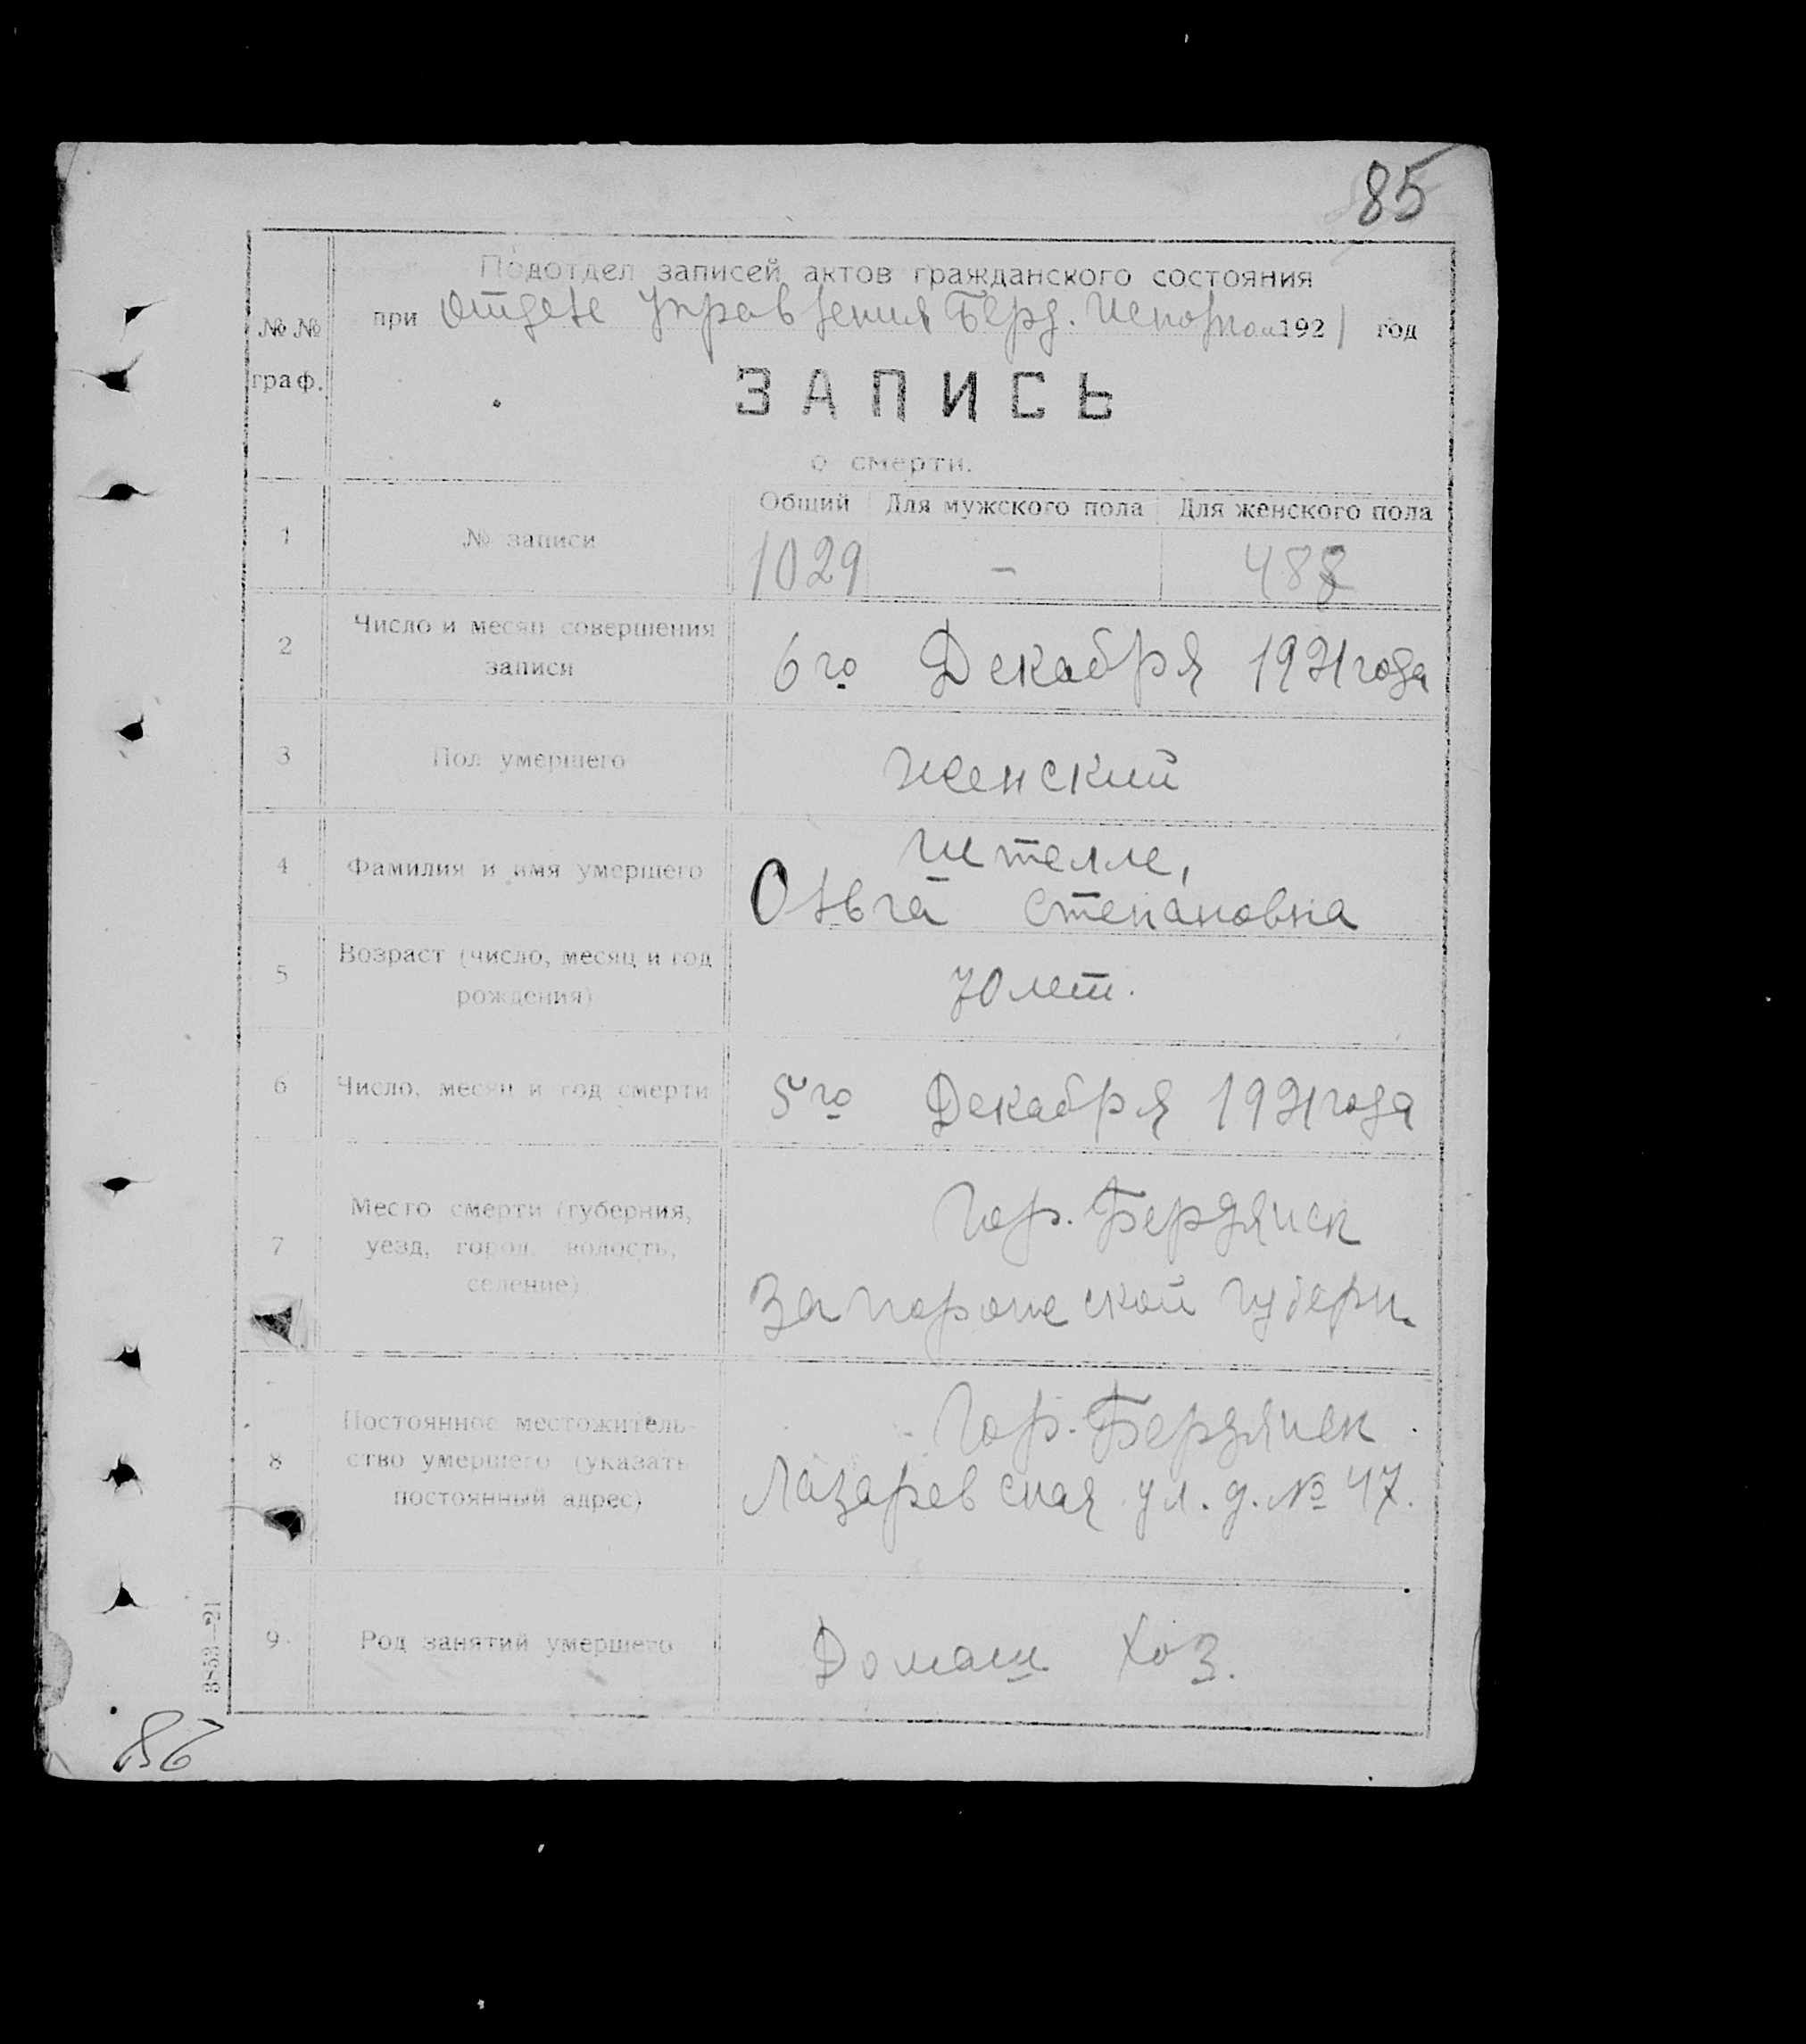 85
Подотдел записей актов гражданского состояния
№№ при Отделе Управления Берд. 1921 год
граф.
ЗАПИСЬ
о смерти.
Общий Для мужского пола Для женского пола
1 № записи 1029 -
2 Число и месяц совершения записи 6го Декабря 1921 года
3 Пол умершего Женский
4 Фамилия и имя умершего
Ольга Степановна
5 Возраст (число, месяц и год рождения) 70 лет.
6 Число, месяц и год смерти 5го Декабря 1921 года
7 Место смерти (губерния, уезд, город, волость, селение) Гор. Бердянск
Запорожской губерн.
8 Постоянное местожительство умершего (указать постоянный адрес) Гор. Бердянск
Лазаревская ул. д. № 47.
9 Род занятий умершего Домашн. Хоз.
3853—21
86